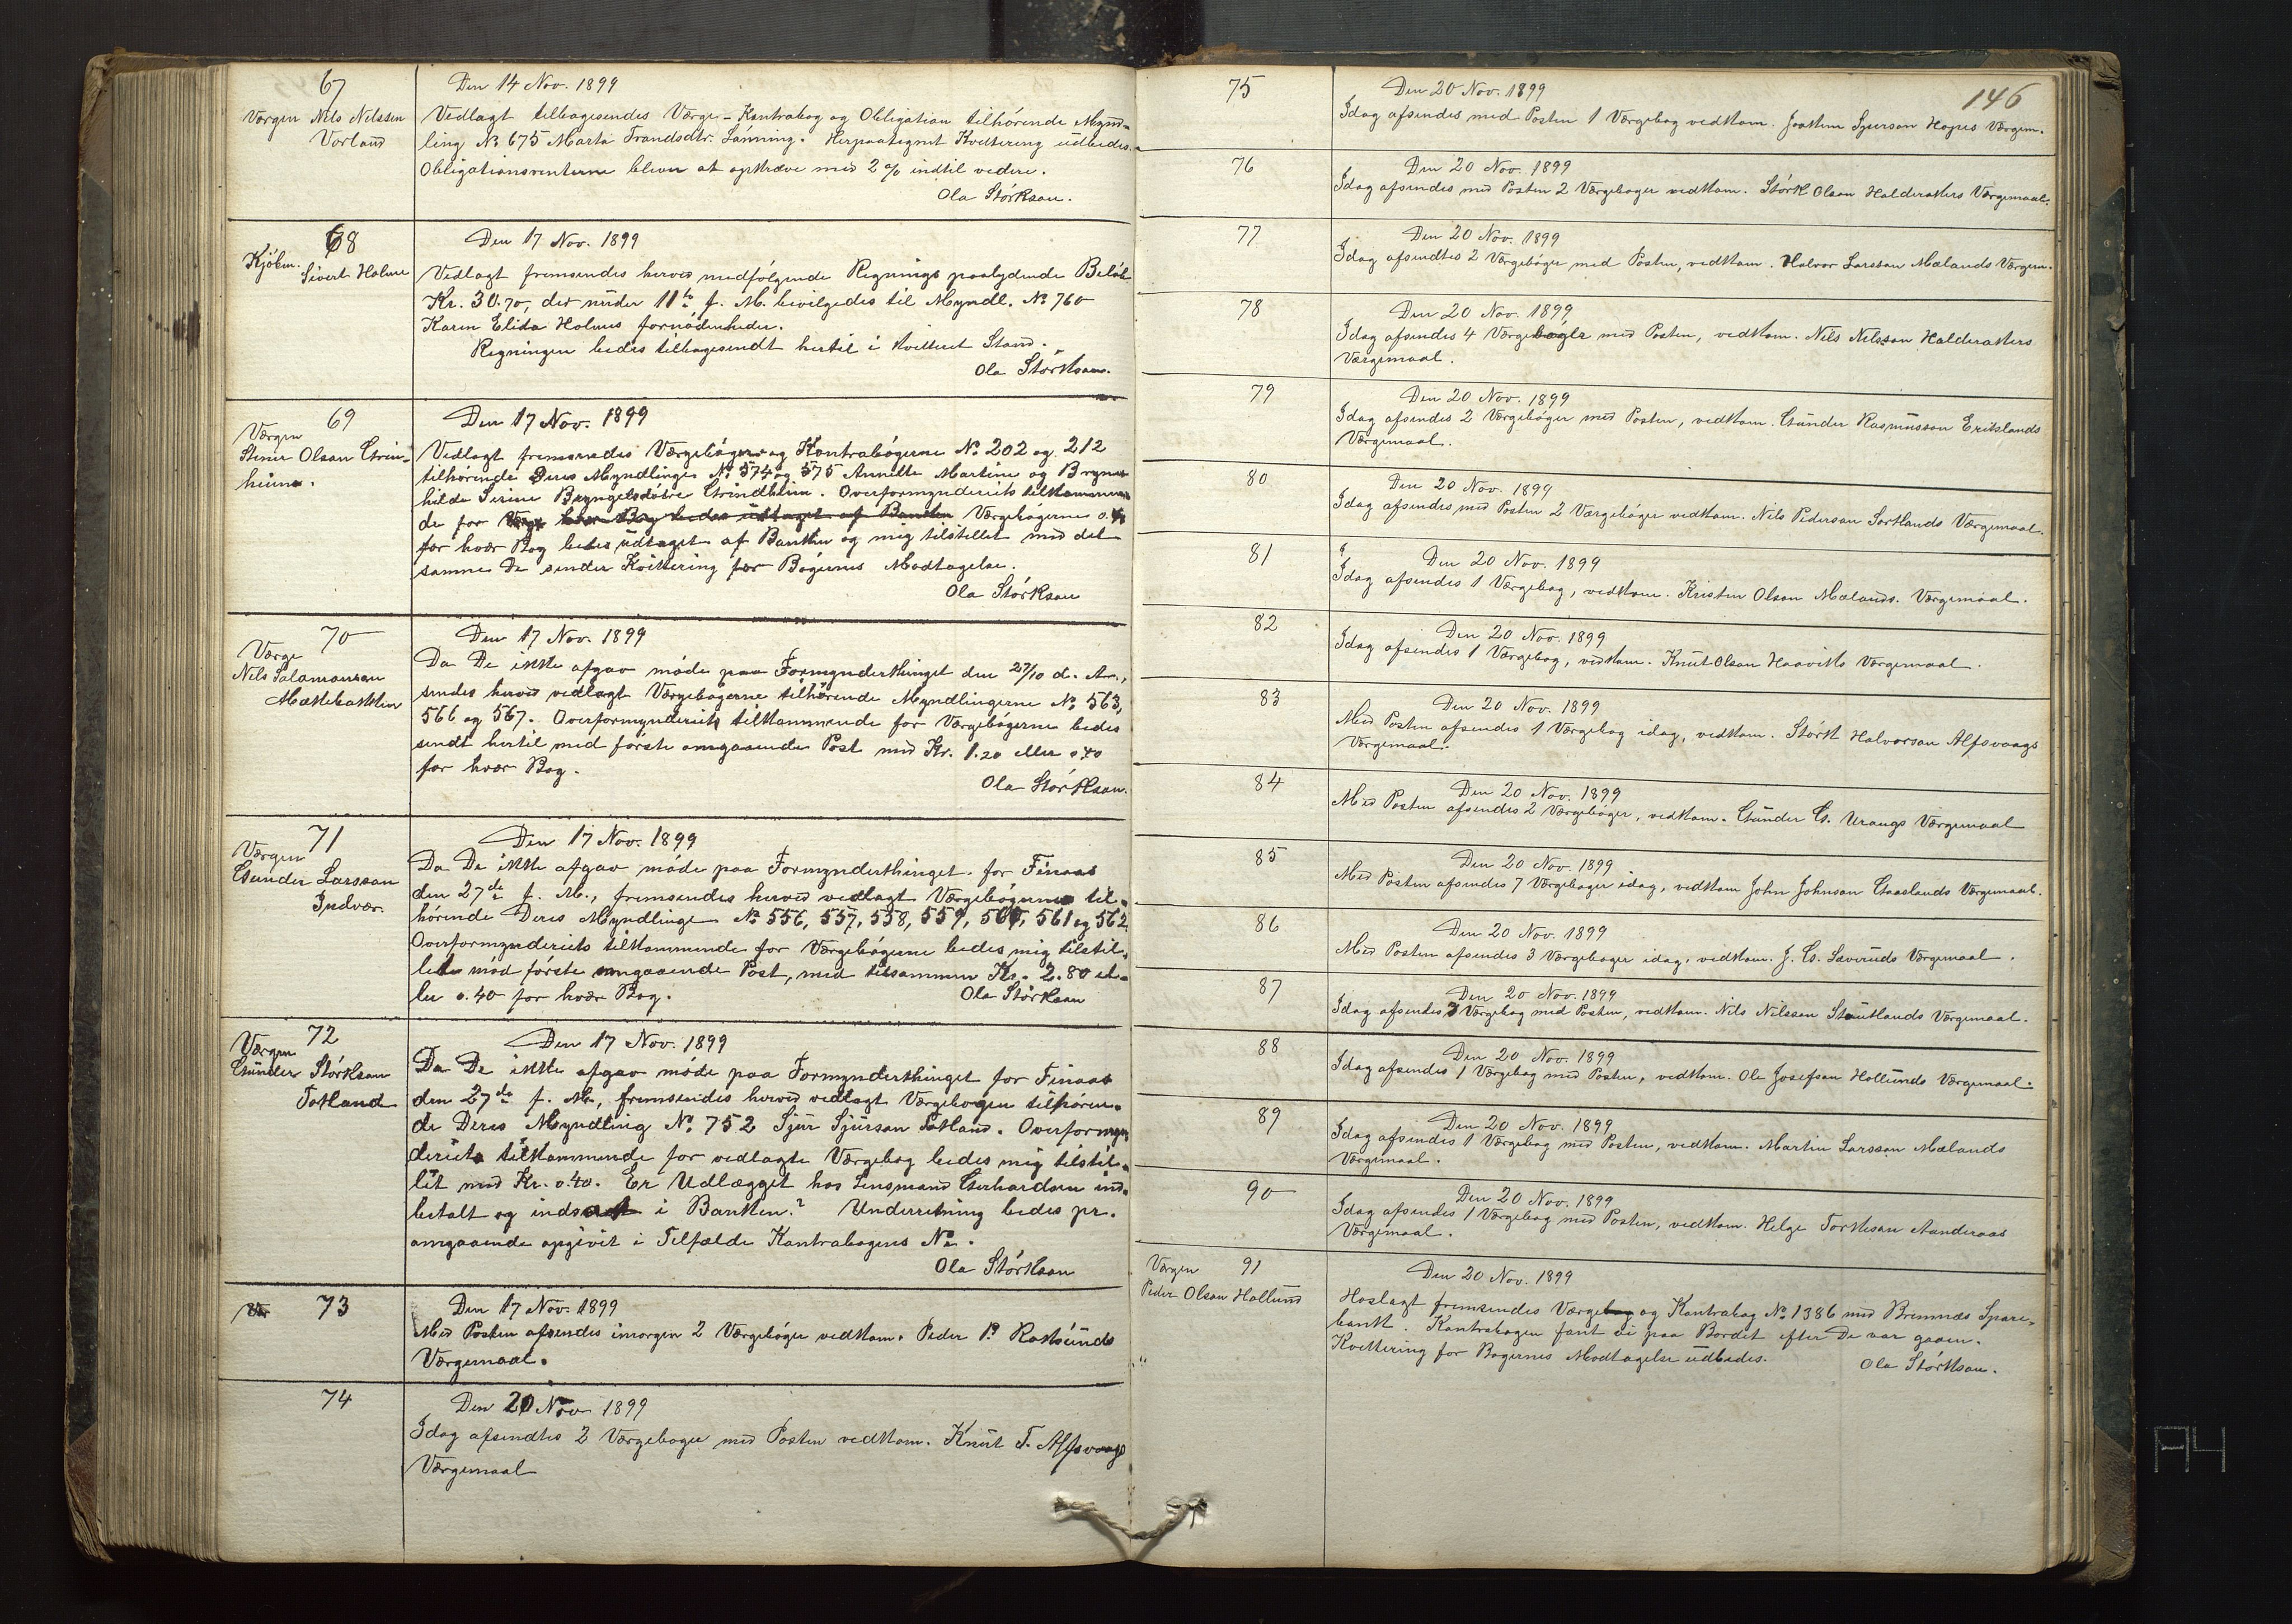 67
Værgen Nils Nilssen
Vorland
Den 14 Nov. 1899
Vedlagt tilbagesendes Værge-Kontrabog og Obligation tilhørende Mynd-
ling No 675 Marta Trandsdtr. Lønning. Herpaategnet Kvittering udbedes.
Obligationsrenterne bliver at opkræve med 2 % indtil videre.
Ola Størkson.
68
Kjøbm.
Sivert Holme
Den 17 Nov. 1899
Vedlagt fremsendes herved medfølgende Regnings paalydende Beløb
Kr. 30.70, der under 11te f. M. bevilgedes til Myndl. No 760
Karen Elida Holmes fornødenheder.
Regningen bedes tilbagesendt hertil i kvitteret Stand.
Ola Størkson.
69
Værgen
Steiner Olson Grin-
heim.
Den 17 Nov. 1899
Vedlagt fremsendes Værgebøger og Kontrabøgerne No 202 og 212
tilhørende Deres Myndlinge No 574 og 575 Annette Martine og Bryne-
hilda Serine Bryngelsdøtre Grindheim. Overformynderiets tilkommen-
de for hver Bog bedes udtaget af Banken Værgebøgerne 0.40
for hver Bog bedes udtaget af Banken og mig tilstillet med det
samme De sender Kvittering for Bøgernes Modtagelse.
Ola Størkson
70
Værge
Nils Salamonsen
Mækkebakken
Den 17 Nov. 1899
Da De ikke afgav møde paa Formynderthinget den 27/10 d. Ar.,
sendes herved vedlagt Værgebøgerne tilhørende Myndlingerne No 563,
566 og 567. Overformynderiets tilkommende for Værgebøgerne bedes
sendt hertil med første omgaaende Post med Kr. 1.20 eller 0.40
for hver Bog.
Ola Størkson.
71
Værgen
Gunder Larsson
Indvær.
Den 17 Nov. 1899
Da De ikke afgav møde paa Formynderthinget for Finaas
den 27de f. M., fremsendes herved vedlagt Værgebøgerne til-
hørende Deres Myndlinge No 556, 557, 558, 559, 560, 561 og 562
Overformynderiets tilkommende for Værgebøgerne bedes mig tilstil-
let med første omgaaende Post, med tilsammen Kr. 2.80 el-
ler 0.40 for hver Bog.
Ola Størkson
72
Værgen
Gunder Størkson
Totland
Den 17 Nov. 1899
Da De ikke afgav møde paa Formynderthinget for Finaas
den 27de f. M., fremsendes herved vedlagt Værgebogen tilhøren-
de Deres Myndling No 752 Sjur Sjurson Totland. Overformyn-
deriets tilkommende for vedlagte Værgebog bedes mig tilstil-
let med Kr. 0.40. Er Udlægget hos Lensmand Gerhardsen ind-
betalt og indsat i Banken? Underretning bedes pr.
omgaaende opgivet i Tilfælde Kontrabogens No.
Ola Størkson
73
Den 17 Nov. 1899
Med Posten afsendes imorgen 2 Værgebøger vedkom. Peder P. Roksunds
Værgemaal.
74
Den 20 Nov 1899
Idag afsendtes 2 Værgebøger med Posten vedkom. Knut T. Alfsvaags
Værgemaal
146
75
Den 20 Nov. 1899
Idag afsendes med Posten 1 Værgebog vedkom. Joakim Sjurson Hopes Værgem.
76
Den 20 Nov. 1899
Idag afsendes med Posten 2 Værgebøger vedkom. Størk Olson Halderakers Værgemaal.
77
Den 20 Nov. 1899
Idag afsendtes 2 Værgebøger med Posten, vedkom. Halvor Larsson Mælands Værgem.
78
Den 20 Nov. 1899
Idag afsendes 4 Værgebøger med Posten, vedkom. Nils Nilsson Halderakers
Værgemaal.
79
Den 20 Nov. 1899
Idag afsendes 2 Værgebøger med Posten, vedkom. Gunder Rasmusson Erikslands
Værgemaal.
80
Den 20 Nov. 1899
Idag afsendes med Posten 2 Værgebøger vedkom. Nils Pederson Sortlands Værgemaal.
81
Den 20 Nov. 1899
Idag afsendes 1 Værgebog, vedkom. Kristen Olson Mælands. Værgemaal.
82
Den 20 Nov. 1899
Idag afsendes 1 Værgebog, vedkom. Knut Olson Haaviks Værgemaal.
83
Den 20 Nov. 1899
Med Posten afsendes 1 Værgebog idag, vedkom. Størk Halvorson Alfsvaags
Værgemaal.
84
Den 20 Nov. 1899
Med Posten afsendes 2 Værgebøger, vedkom. Gunder G. Urangs Værgemaal
85
Den 20 Nov. 1899
Med Posten afsendes 7 Værgebøger idag, vedkom John Johnson Gaaslands Værgemaal.
86
Den 20 Nov. 1899
Med Posten afsendes 3 Værgebøger idag, vedkom. J. G. Særeruds Værgemaal.
87
Den 20 Nov. 1899
Idag afsendes 3 Værgebog med Posten, vedkom. Nils Nilsson Stautlands Værgemaal.
88
Den 20 Nov. 1899
Idag afsendes 1 Værgebog med Posten, vedkom. Ole Josefson Hollunds Værgemaal.
89
Den 20 Nov. 1899
Idag afsendes 1 Værgebog med Posten, vedkom. Martin Larsson Mælands
Værgemaal.
90
Den 20 Nov. 1899
Idag afsendes 1 Værgebog med Posten, vedkom. Helge Torkeson Aanderaas
Værgemaal.
91
Værgen
Peder Olson Hollund
Den 20 Nov. 1899
Hoslagt fremsendes Værgebog og Kontrabog No 1386 med Bremnæs Spare-
bank. Kontrabogen fant vi paa Bordet efter De var gaaen.
Kvittering for Bøgernes Modtagelse udbedes.
Ola Størkson.